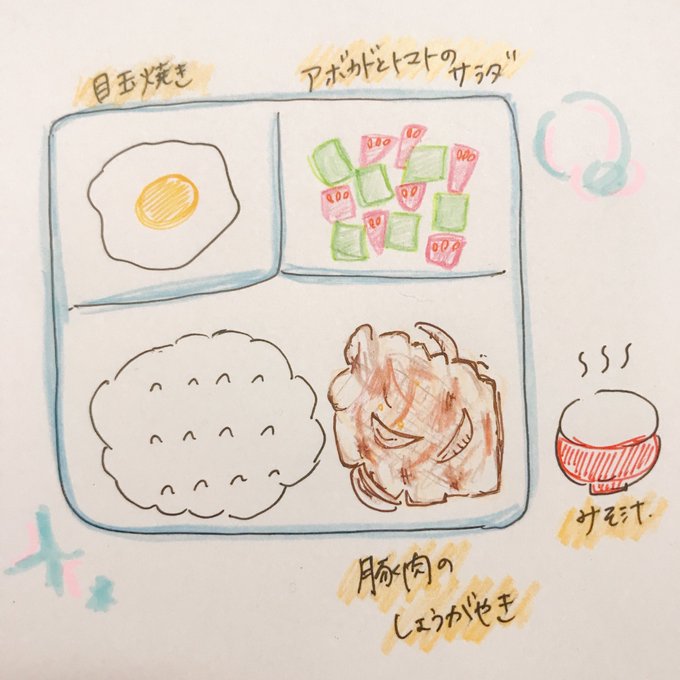 目玉焼き
アボカドとトマトの
サラダ
みそ汁.
豚肉の
しょうがやき